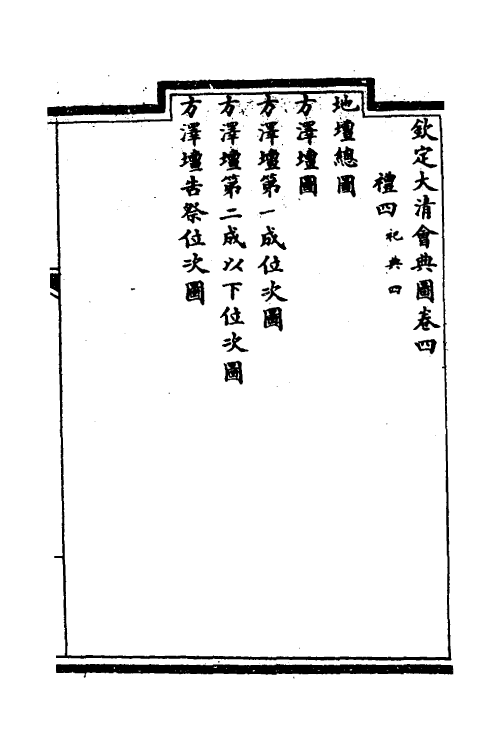 欽定大清會典圖卷四
禮四祀典四
地壇總圖
方澤壇圖
方澤壇第一成位次圖
方澤壇第二成以下位次圖
方澤壇告祭位次圖